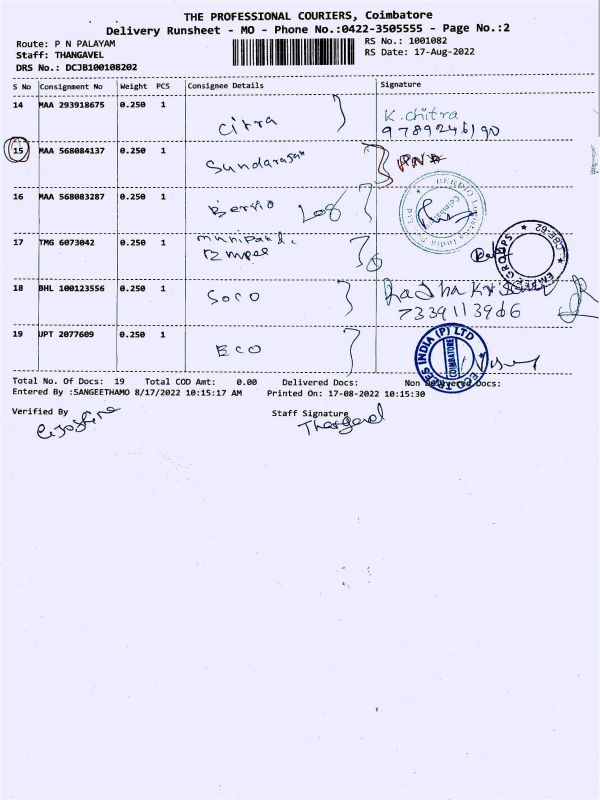 THE PROFESSIONAL COURIERS, Coimbatore
Delivery Runsheet - MO - Phone No.:0422-3505555 - Page No.:2
Route: P N PALAYAM
Staff: THANGAVEL
DRS No.: DCJB100108202
RS No.: 1001082
RS Date: 17-Aug-2022
S No Consignment No Weight PCS Consignee Details Signature
14 MAA 293918675 0.250 1 Citra K. chitra
9789246190
15 MAA 568084137 0.250 1 Sundarasan
16 MAA 568083287 0.250 1 Log
17 TMG 6073042 0.250 1
18 BHL 100123556 0.250 1 Soco Radha Krishnan
7339113966
19 JPT 2077609 0.250 1 ECO
INDIA (P) LTD
COIMBATORE
EMPEE GROUPS ★ CBE-62 ★
Total No. Of Docs: 19 Total COD Amt: 0.00 Delivered Docs: Non Delivered Docs:
Entered By :SANGEETHAMO 8/17/2022 10:15:17 AM Printed On: 17-08-2022 10:15:30
Verified By Staff Signature
Thangavel